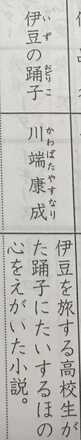 伊豆の踊子
いず おどりこ
川端康成
かわばたやすなり
伊豆を旅する高校生が
た踊子にたいするほの
心をえがいた小説。